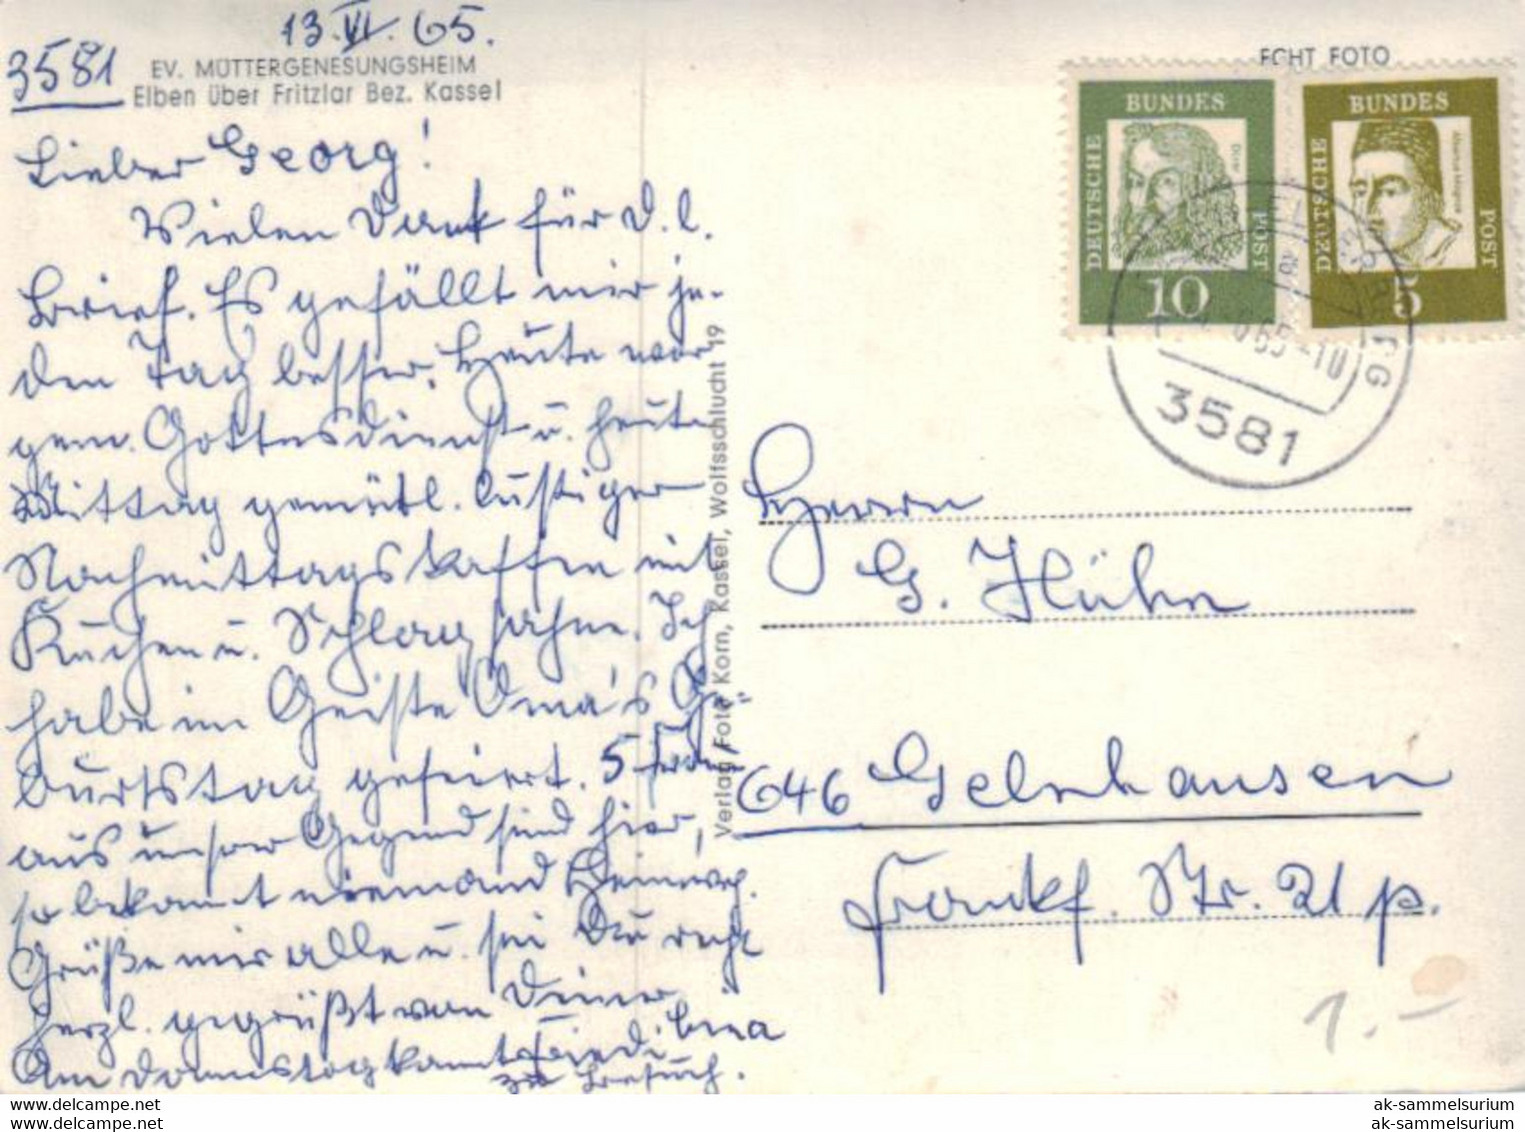 13.VI.65.
3581
EV. MÜTTERGENESUNGSHEIM
Elben über Fritzlar Bez. Kassel
ECHT FOTO
Lieber Georg!
Vielen Dank für D. l.
Brief. Es gefällt mir je-
den Tag besser. Heute war
gem. Gottesdienst u. heute
Mittag gemütl. lustiger
Nachmittagskaffee mit
Kuchen u. Schlagsahne. Ich
habe im Geiste Oma's Ge=
burtstag gefeiert. 5
aus unsrer Gegend sind hier,
so bekommt niemand Heimweh.
Grüße mir alle u. sei Du recht
herzl. gegrüßt von Deiner
Am Donnerstag kommt
zu Besuch.
Verlag Foto Korn, Kassel, Wolfsschlucht 19
DEUTSCHE BUNDES POST
Dürer
10
DEUTSCHE BUNDES POST
Albertus Magnus
5
665-10
3581
Herrn
G. Hühn
646 Gelnhausen
Frankf. Str. 21 p.
1.-
www.delcampe.net
www.delcampe.net
ak-sammelsurium
ak-sammelsurium